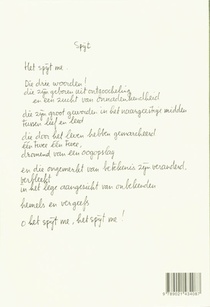 Spijt
Het spijt me...
Die drie woorden!
die zijn geboren uit ontgoocheling
en een zucht van tevredenheid
die zijn groot geworden in het midden
tussen lief en leed
die door het leven hebben gemarcheerd
één twee één twee,
dromend van een oogopslag
en die ongemerkt van betekenis zijn veranderd,
verbleekt
in het lege aangezicht van onbekenden
hemels en vergeefs
o het spijt me, het spijt me!